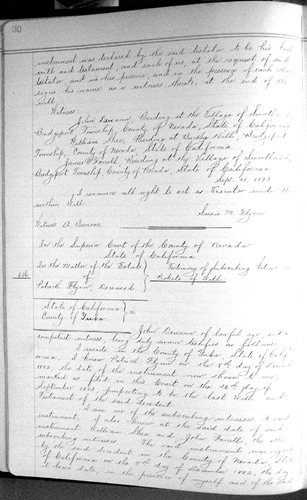 30
instrument was declared by the said testator to be his last
will and testament, and each of us, at the request of said
testator, and in his presence, and in the presence of each other
signs his name as a witness thereto, at the end of the
Will.
Witness.
John Dewane, Residing at the Village of Smartville
Bridgeport Township, County of Nevada, State of California
William Shea, Residing at Bridgeport
Township, County of Nevada State of California
James W. Farrell, Residing at the Village of Smartville,
Bridgeport Township, County of Nevada, State of California
Sept. 20, 1883
I renounce all right to act as Executor under the
within Will.
Susie M. Flynn
Witness A. Burrows
In the Superior Court of the County of Nevada
State of California
In the Matter of the Estate
of
Patrick Flynn, Deceased
Testimony of Subscribing Witness on
Probate of Will
State of California
County of Yuba
ss
John Dewane of lawful age, and a
competent witness, being duly sworn testifies as follows
I reside in the County of Yuba State of Calif
ornia. I knew Patrick Flynn on the 8th day of December
1882, the date of the instrument now shown to me,
marked as filed in this Court on the 26th day of
September 1883 purporting to be the last Will and
Testament of the said Decedent.
I am one of the subscribing witnesses to said
instrument. I also knew at the said date of said
instrument William Shea and John Farrell, the other
subscribing witnesses. The said instrument was signed
by the said decedent in the County of Nevada, State
of California on the 8th day of December 1882, the day
it bears date in the presence of myself and of the said